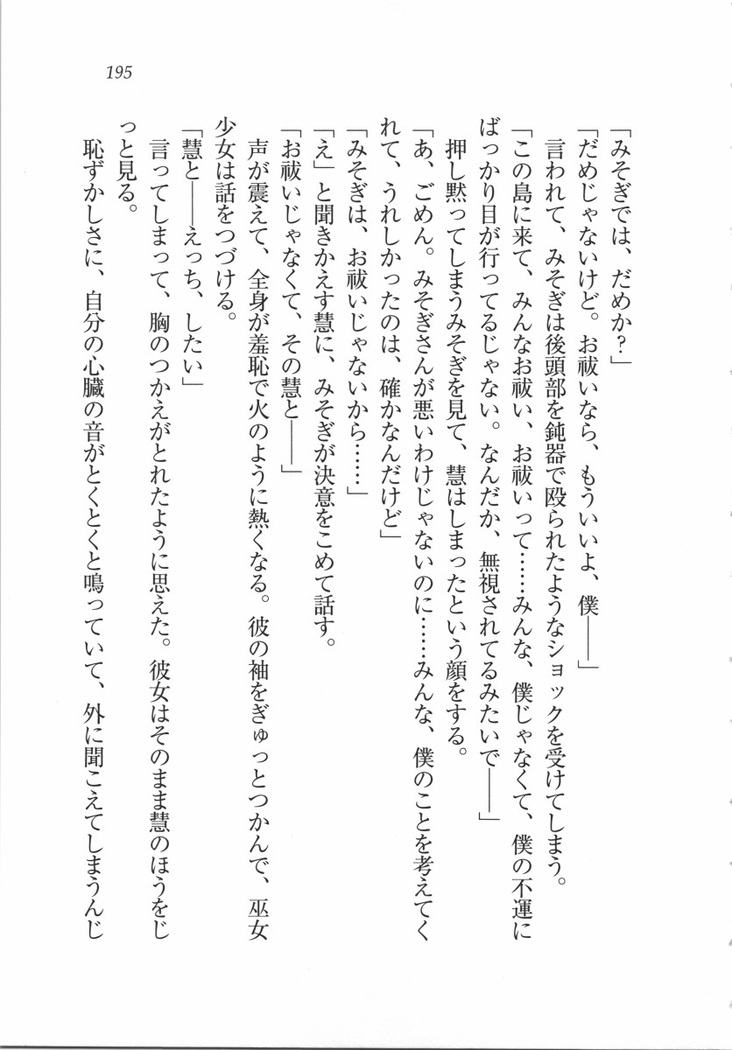 195
「みそぎでは、だめか？」
「だめじゃないけど。お祓いなら、もういいよ、僕――」
言われて、みそぎは後頭部を鈍器で殴られたようなショックを受けてしまう。
「この島に来て、みんなお祓い、お祓いって……みんな、僕じゃなくて、僕の不運に
ばっかり目が行ってるじゃない。なんだか、無視されてるみたいで――」
押し黙ってしまうみそぎを見て、慧はしまったという顔をする。
「あ、ごめん。みそぎさんが悪いわけじゃないのに……みんな、僕のことを考えてく
れて、うれしかったのは、確かなんだけど」
「みそぎは、お祓いじゃないから……」
「え」と聞きかえす慧に、みそぎが決意をこめて話す。
「お祓いじゃなくて、その慧と――」
声が震えて、全身が羞恥で火のように熱くなる。彼の袖をぎゅっとつかんで、巫女
少女は話をつづける。
「慧と――えっち、したい」
言ってしまって、胸のつかえがとれたように思えた。彼女はそのまま慧のほうをじ
っと見る。
恥ずかしさに、自分の心臓の音がとくとくと鳴っていて、外に聞こえてしまうんじ